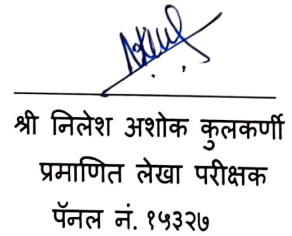 श्री निलेश अशोक कुलकर्णी
प्रमाणित लेखा परीक्षक
पॅनल नं. १५३२७